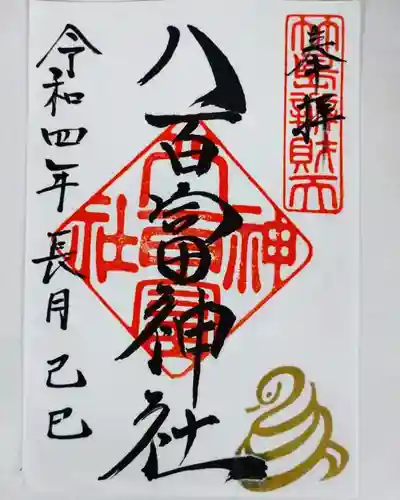 奉拝
竹島辨財天
八百富神社
八百富神社
令和四年長月己巳